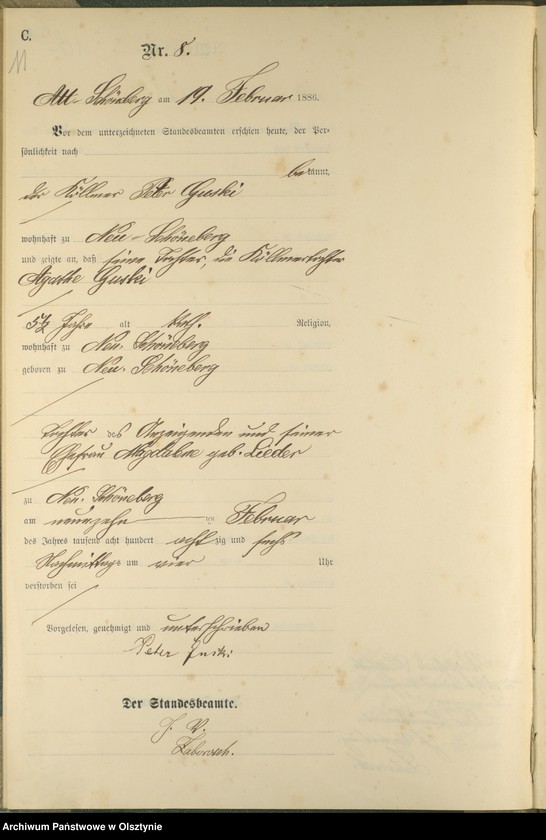 C.
11
Nr. 8.
Alt-Schöneberg am 19. Februar 1886.
Vor dem unterzeichneten Standesbeamten erschien heute, der Per-
sönlichkeit nach
bekannt,
der Köllmer Peter Guski
wohnhaft zu Neu-Schöneberg
und zeigte an, daß seine Tochter, die Köllmertochter
Agathe Guski
5½ Jahre alt kath. Religion,
wohnhaft zu Neu-Schöneberg
geboren zu Neu-Schöneberg
Tochter des Anzeigenden und seiner
Ehefrau Magdalene geb. Lieder
zu Neu-Schöneberg
am neunzehn ten Februar
des Jahres tausend acht hundert achtzig und sechs
Nachmittags um vier Uhr
verstorben sei
Vorgelesen, genehmigt und unterschrieben
Peter
Der Standesbeamte.
J. V.
Archiwum Państwowe w Olsztynie